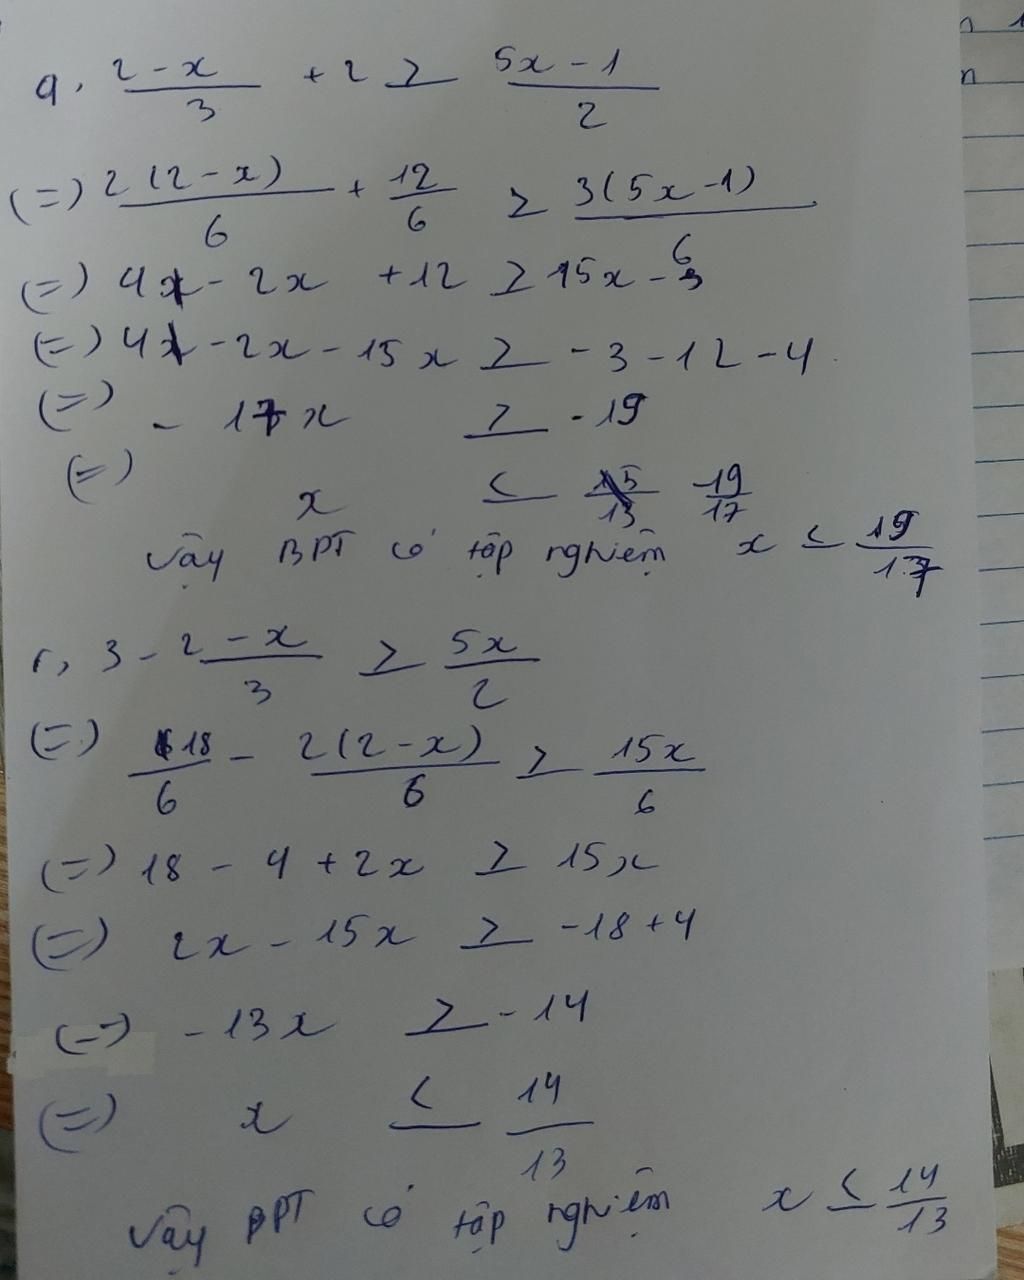 a, 2-x/3 + 2 ≥ 5x-1/2
(=) 2(2-x)/6 + 12/6 ≥ 3(5x-1)/6
(=) 4 - 2x + 12 ≥ 15x - 3
(=) 4 - 2x - 15x ≥ -3 - 12 - 4
(=) - 17x ≥ -19
(=) x ≤ 19/17
Vậy BPT có tập nghiệm x ≤ 19/17
c, 3 - 2-x/3 ≥ 5x/2
(=) 18/6 - 2(2-x)/6 ≥ 15x/6
(=) 18 - 4 + 2x ≥ 15x
(=) 2x - 15x ≥ -18 + 4
(=) -13x ≥ -14
(=) x ≤ 14/13
Vậy BPT có tập nghiệm x ≤ 14/13